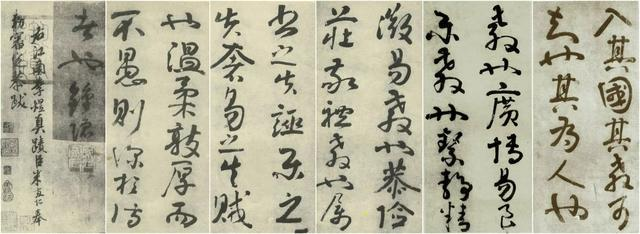 入其國其教可
知也其為人也
教也廣博易良
樂教也絜靜精
微易教也恭儉
莊敬禮教也屬
書之失誣樂之
失奢易之失賊
也溫柔敦厚而
不愚則深於詩
者也 鍾隱
右江南李煜真蹟臣米友仁奉
勅審定恭跋